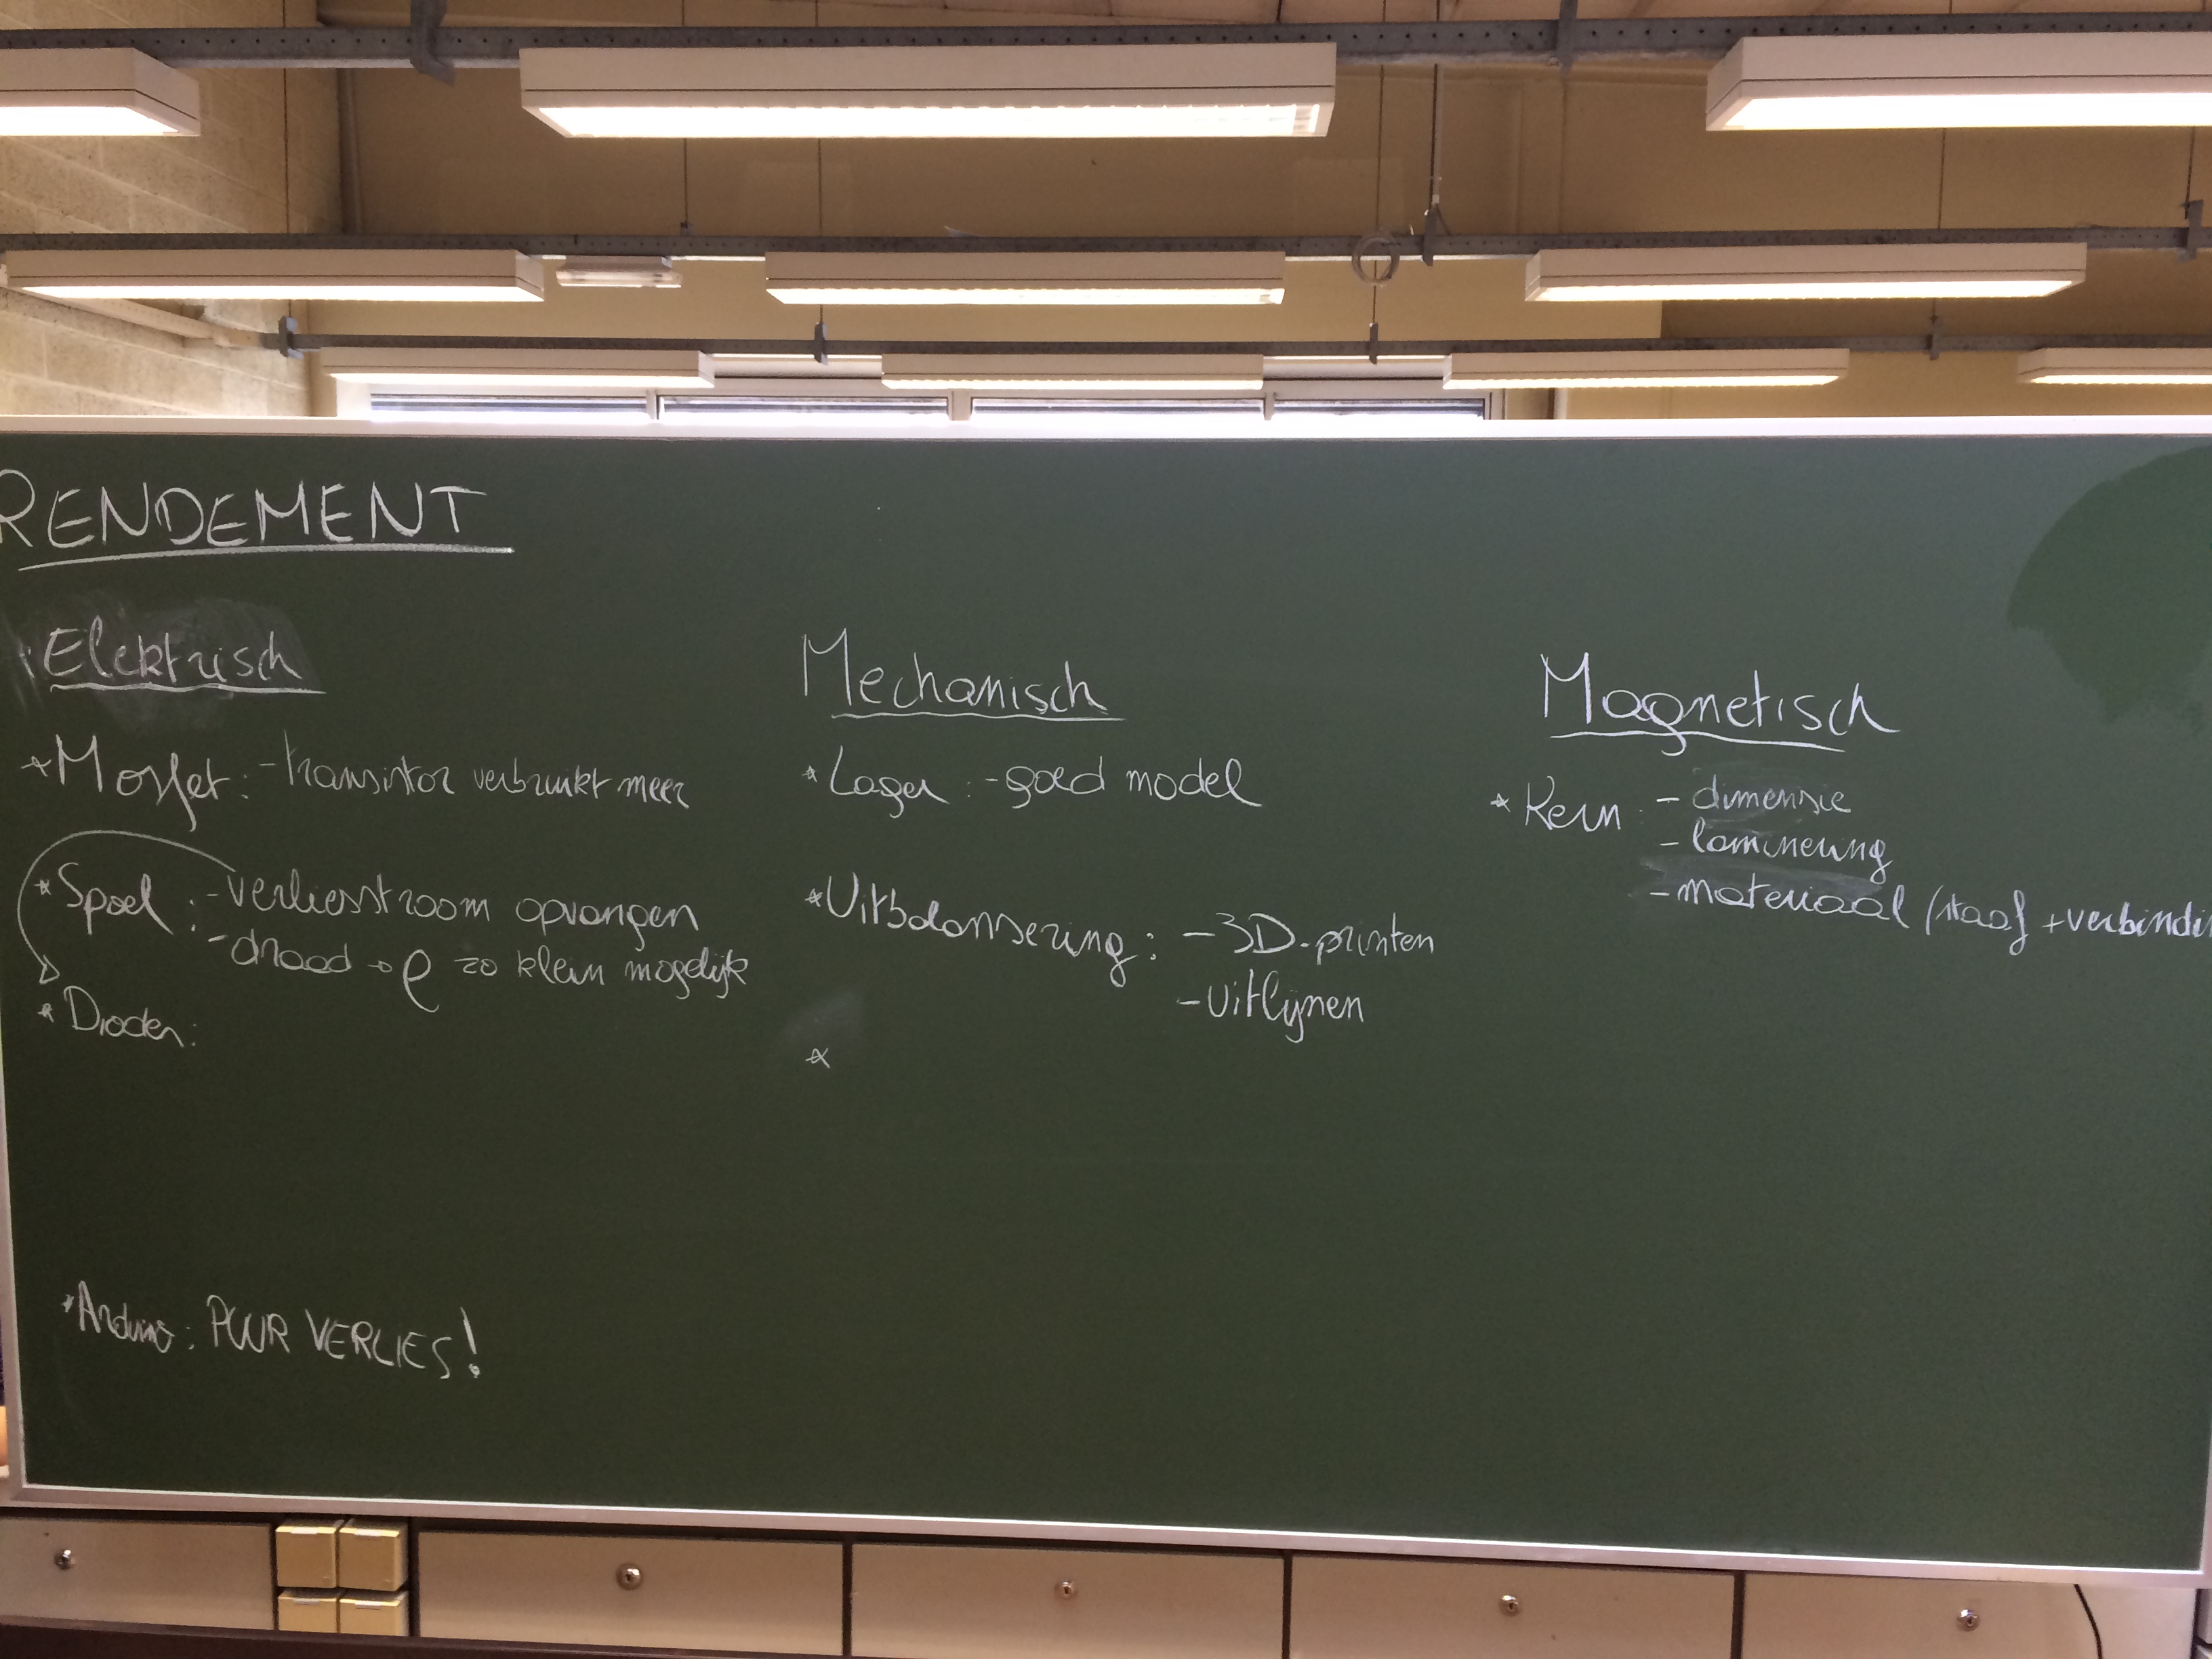 RENDEMENT
Elektrisch
* Mosfet: - transistor verbruikt meer
* Spoel: - verliesstroom opvangen
- draad → ρ zo klein mogelijk
* Dioden:
* Arduino: PUUR VERLIES!
Mechanisch
* Lager: - goed model
* Uitbalansering: - 3D-printen
- Uitlijnen
*
Magnetisch
* Kern: - dimensie
- laminering
- materiaal (staaf + verbindi